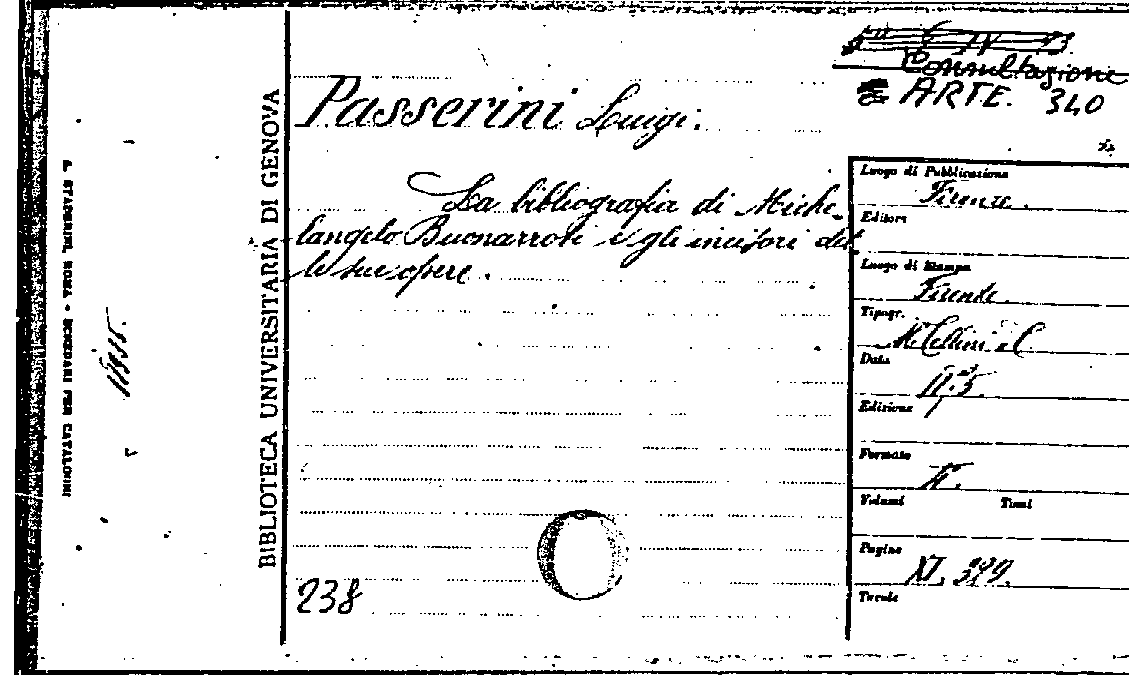 Consultazione
ARTE. 340
Passerini Luigi.
La bibliografia di Miche-
langelo Buonarroti e gli incisori del-
le sue opere.
238
BIBLIOTECA UNIVERSITARIA DI GENOVA
ROMA • SCHEDARI PER CATALOGHI
Luogo di Pubblicazione
Firenze.
Editore
Luogo di Stampa
Firenze.
Tipogr.
M. Cellini e C.
Data
Edizione
Formato
Volumi Tomi
Pagine
XI,
Tavole